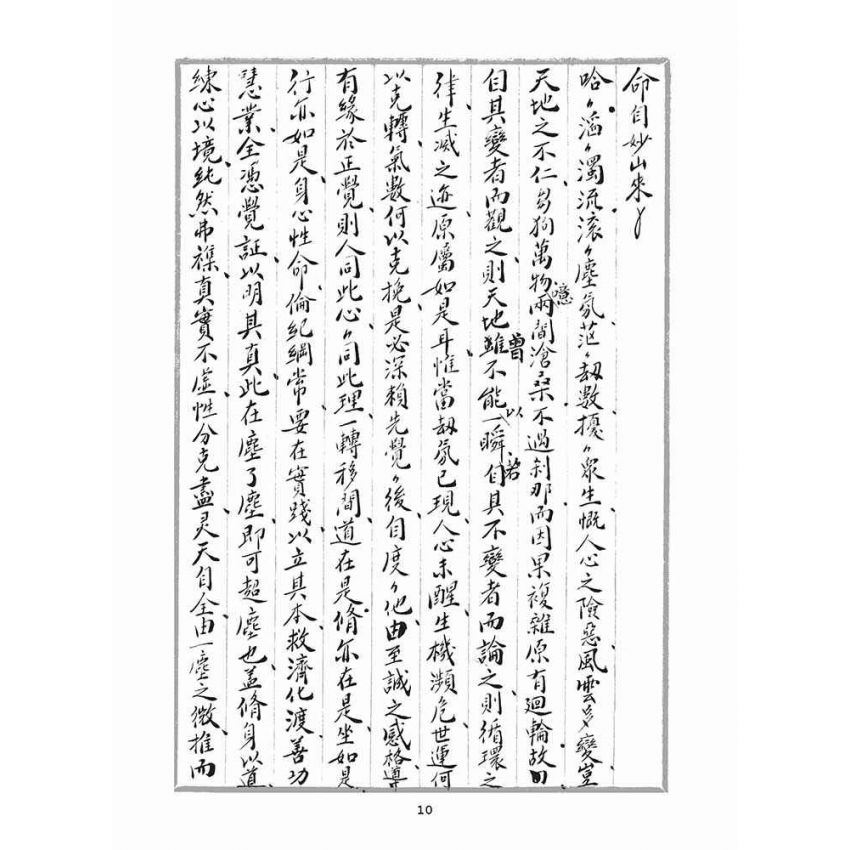 命自妙山來々
哈々滔々濁流滾々塵氛茫々劫數擾々眾生慨人心之險惡風雲多變豈
天地之不仁芻狗萬物噫兩間滄桑不過剎那而因果複雜原有迴輪故曰
自其變者而觀之則天地雖曾不能以一瞬自若其不變者而論之則循環之
律生滅之迹原屬如是耳惟當劫氛已現人心未醒生機瀕危世運何
以克轉氣數何以克挽是必深賴先覺々後自度々他由至誠之感格導
有緣於正覺則人同此心々同此理一轉移間道在是脩亦在是坐如是
行亦如是身心性命倫紀綱常要在實踐以立其本救濟化渡善功
慧業全憑覺証以明其真此在塵了塵即可超塵也蓋脩身以道
練心以境純然弗襍真實不虛性分克盡灵天自全由一塵之微推而
10